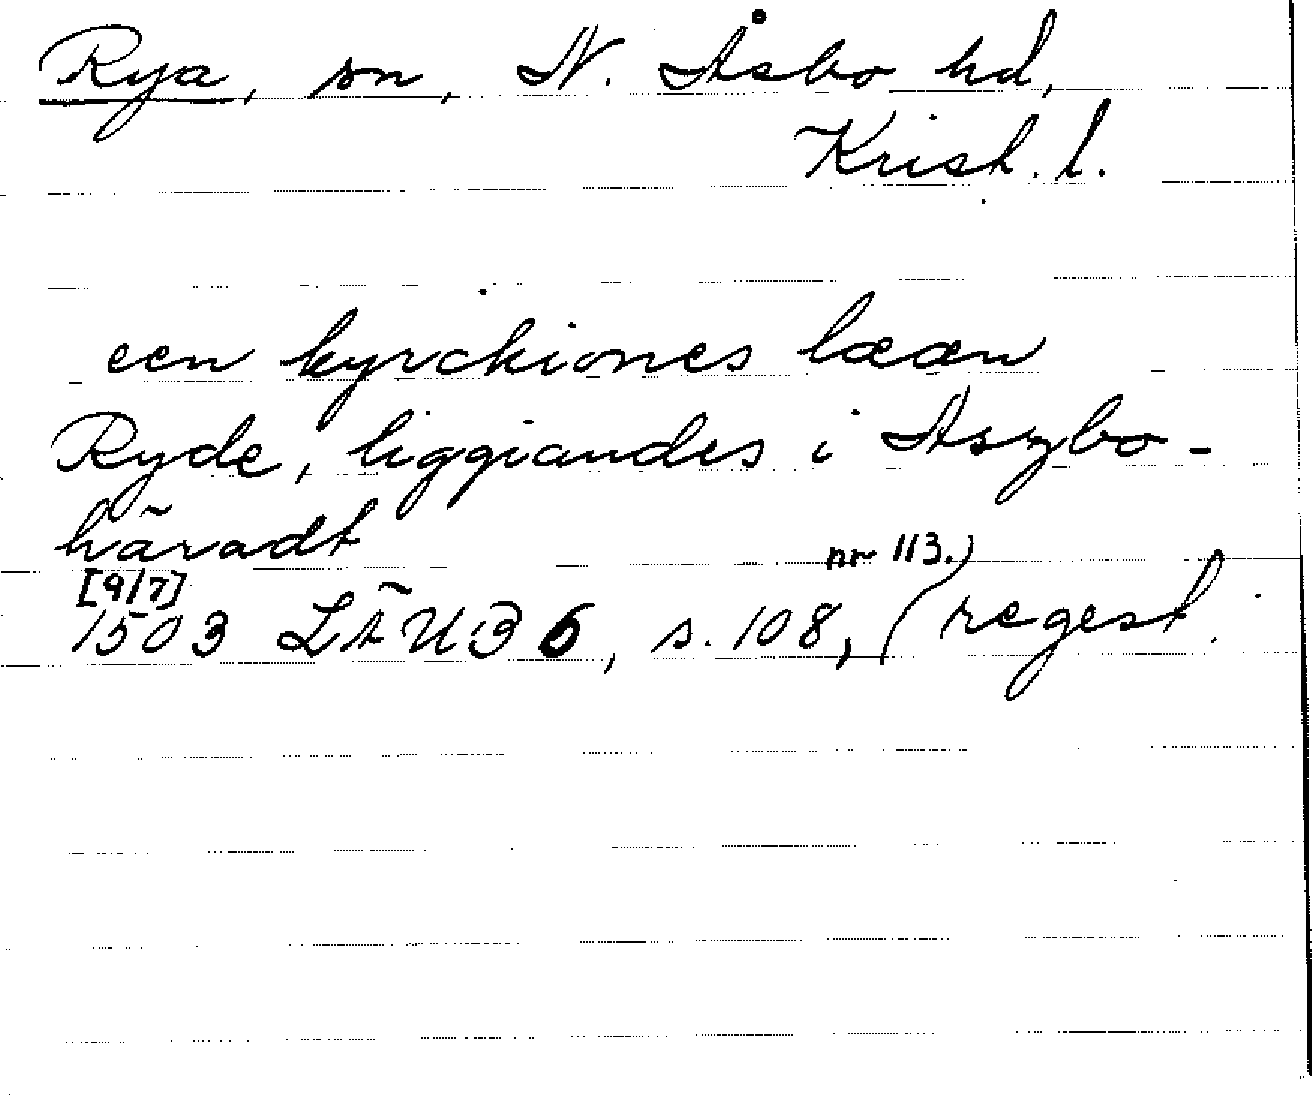 Rya, sn, N. Åsbo hd,
Krist. l.
een kyrckiones lææn
Ryde, liggiandes i Aszbo-
häradt
[9/7] nr 113.)
1503 LÄUB 6, s. 108, (regest.